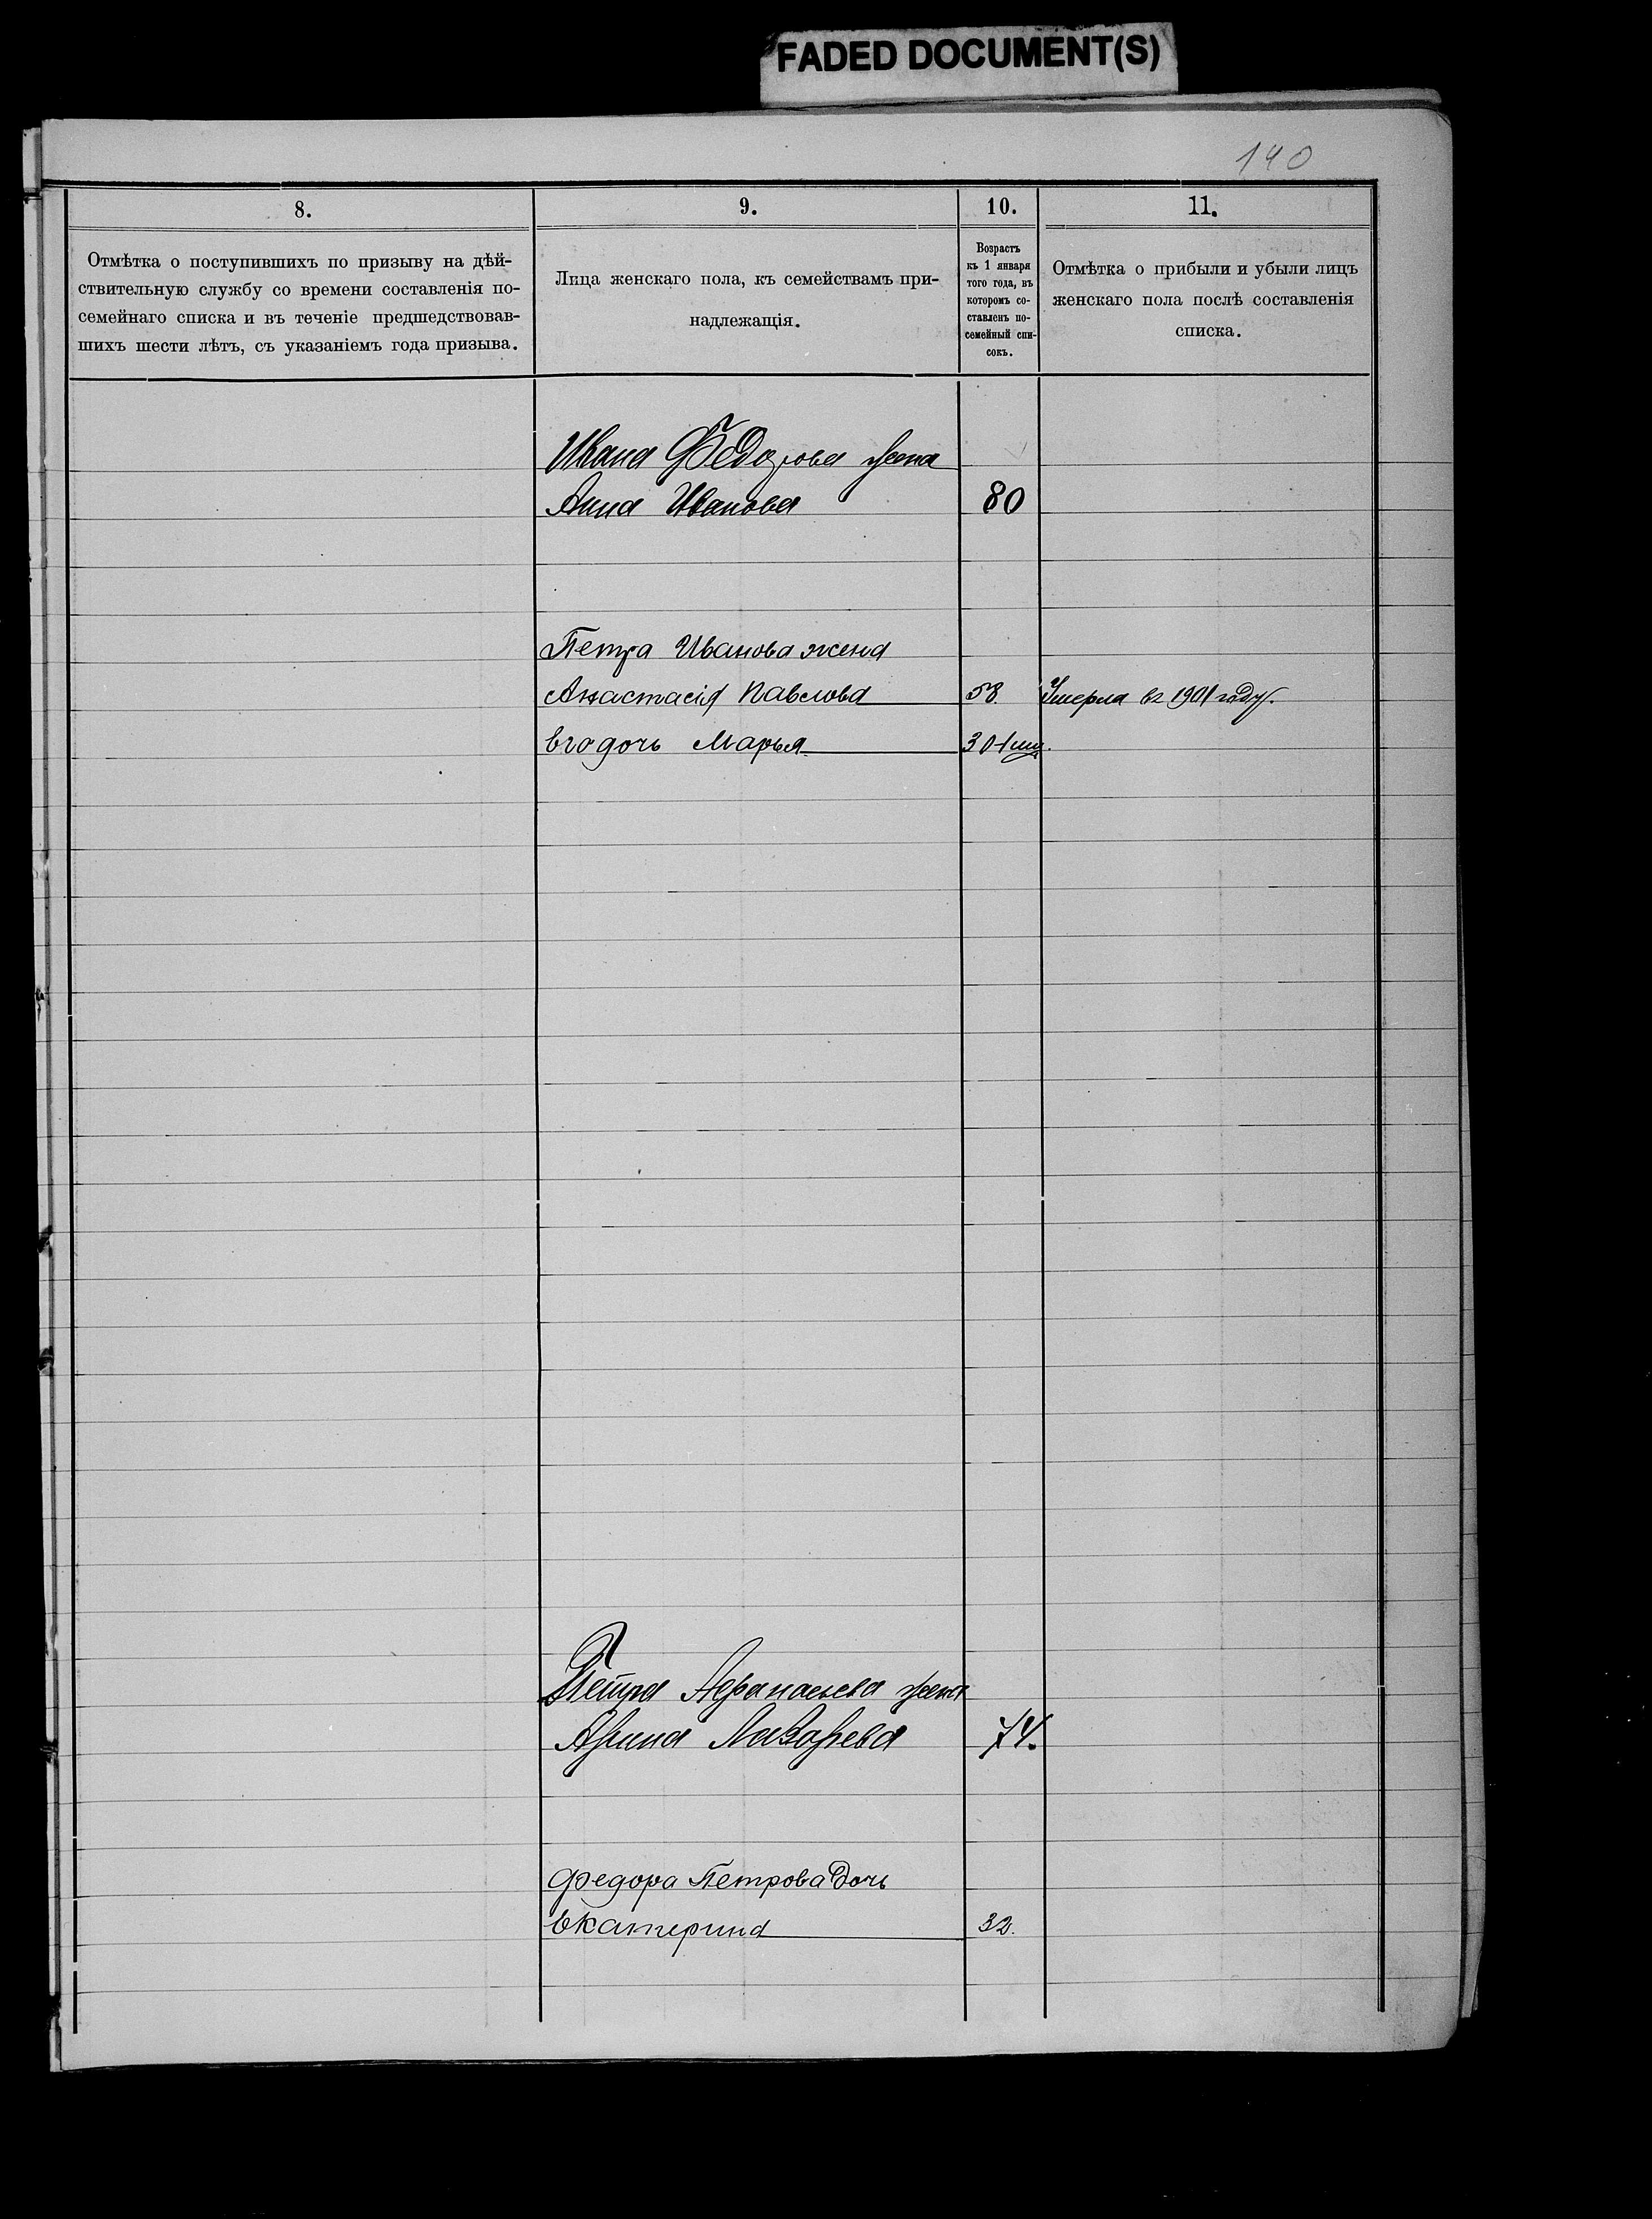 FADED DOCUMENT(S)
140
8.
9.
10.
11.
Отмѣтка о поступившихъ по призыву на дѣй-
ствительную службу со времени составленія по-
семейнаго списка и въ теченіе предшедствовав-
шихъ шести лѣтъ, съ указаніемъ года призыва.
Лица женскаго пола, къ семействамъ при-
надлежащія.
Возрастъ
къ 1 января
того года, въ
которомъ со-
ставленъ по-
семейный спи-
сокъ.
Отмѣтка о прибыли и убыли лицъ
женскаго пола послѣ составленія
списка.
Ивана Федорова жена
Анна Иванова 80
Петра Иванова жена
Анастасія Павлова 58. Умерла въ 1901 году.
Его дочь Марья 30
Петра Афанасьева жена
Арина Лазарева 74.
Федора Петрова дочь
Екатерина 32.